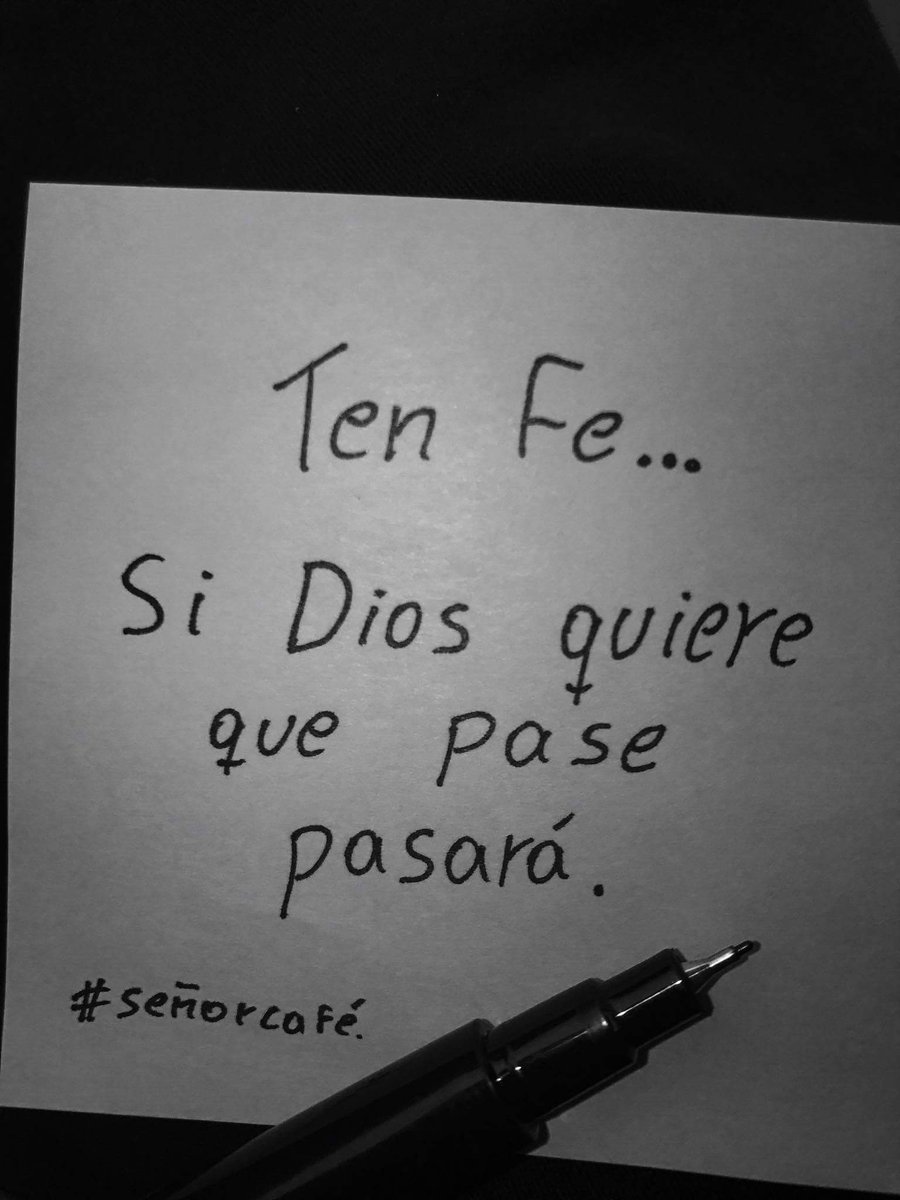 Ten Fe...
Si Dios quiere
que pase
pasará.
#señorcafé.